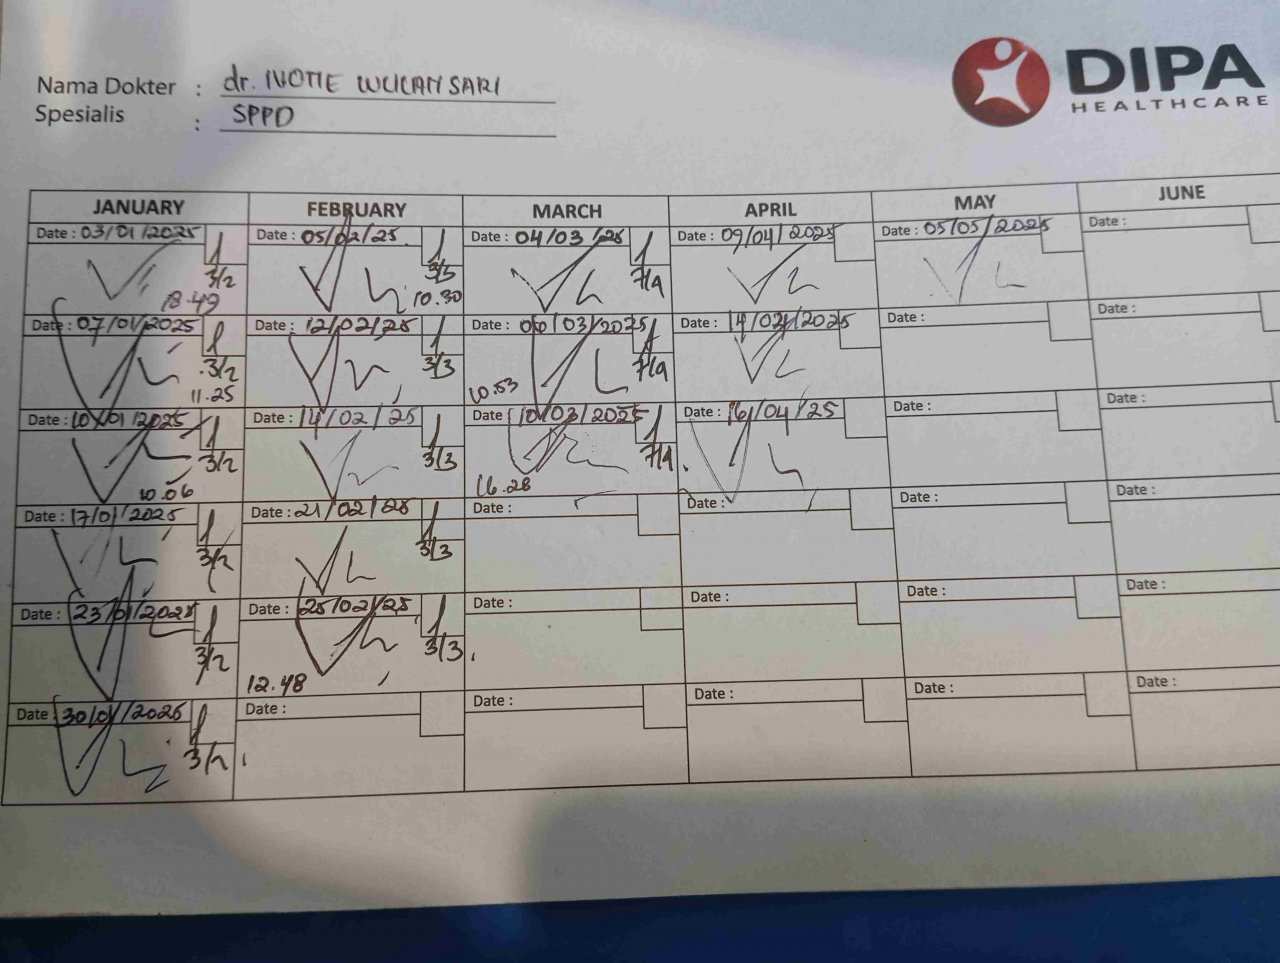 Nama Dokter : dr. IVOTTE WULAN SARI
Spesialis : SPPD
DIPA
HEALTHCARE
JANUARY FEBRUARY MARCH APRIL MAY JUNE
Date : 03/01/2025 Date : 05/02/25. Date : 04/03/25 Date : 09/04/2025 Date : 05/05/2025 Date :
3/2 3/3 7/4
18.49 10.30
Date : 07/01/2025 Date : 12/02/25 Date : 06/03/2025 Date : 14/04/2025 Date : Date :
3/2 3/3 7/4
11.25 10.53
Date : 10/01/2025 Date : 14/02/25 Date : 10/03/2025 Date : 16/04/25 Date : Date :
3/2 3/3 7/4
10.06 16.28
Date : 17/01/2025 Date : 21/02/25 Date : Date : Date : Date :
3/2 3/3
Date : 23/01/2025 Date : 25/02/25 Date : Date : Date : Date :
3/2 3/3
12.48
Date : 30/01/2025 Date : Date : Date : Date : Date :
3/2